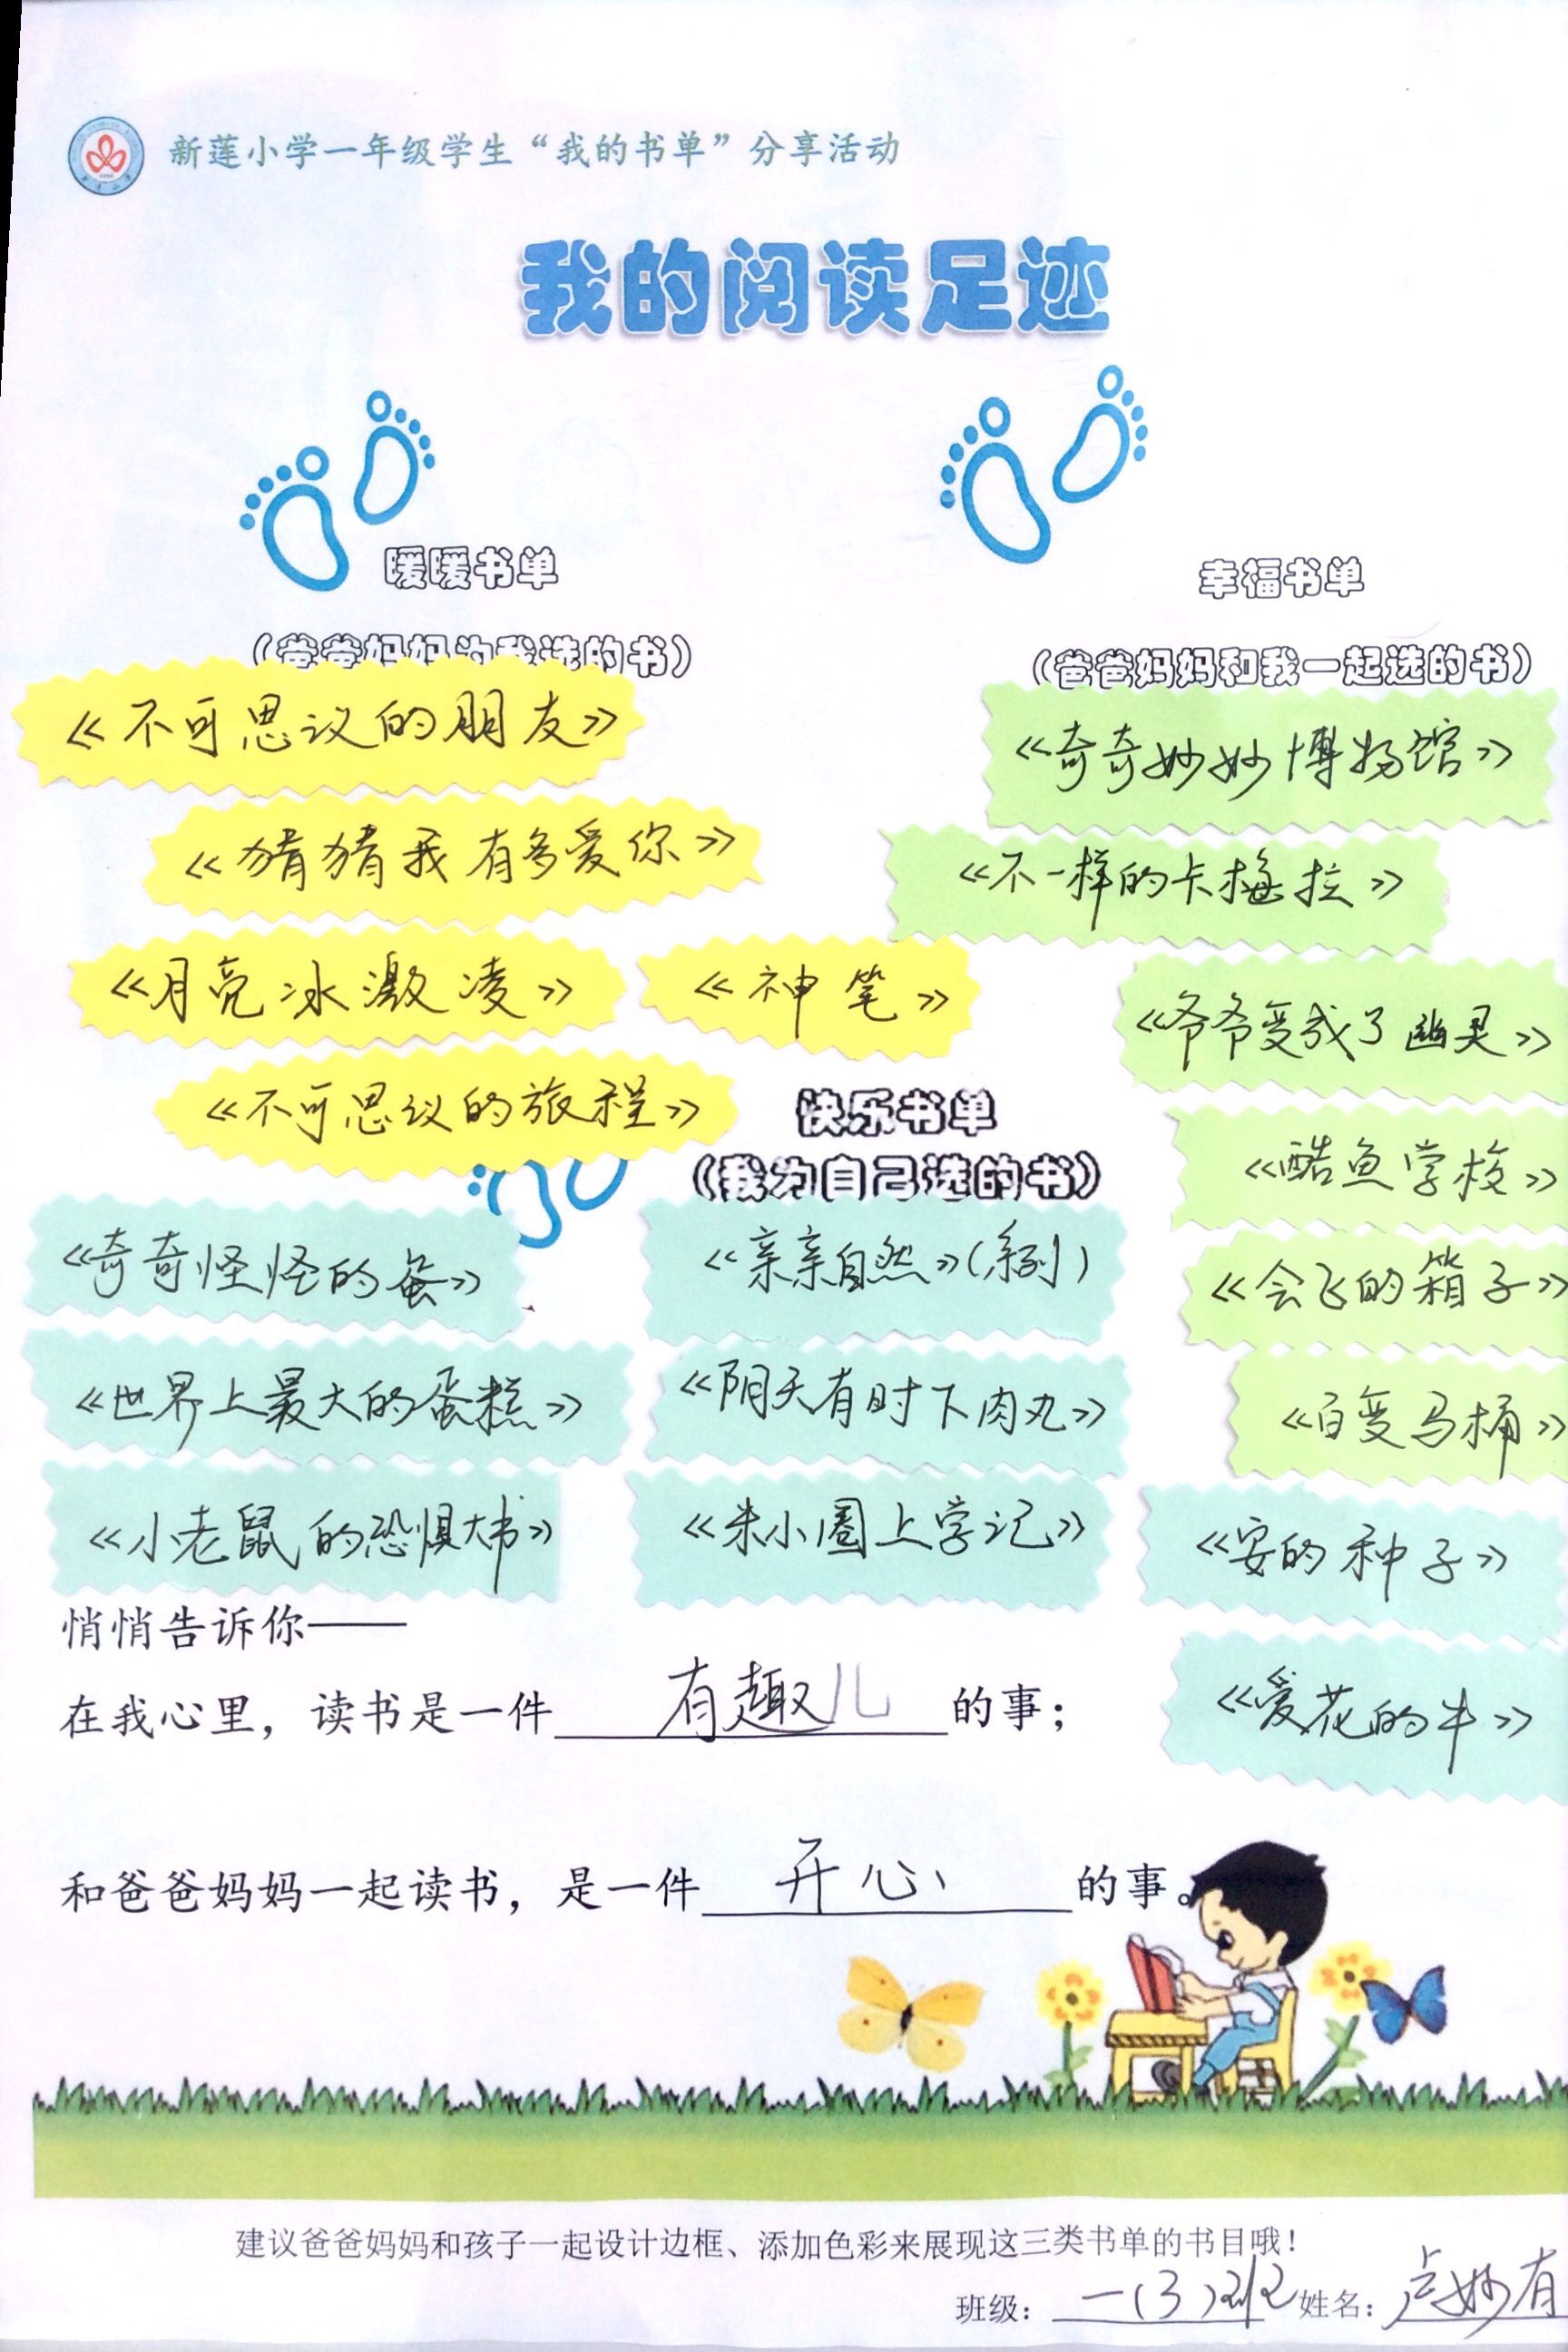 新莲小学一年级学生“我的书单”分享活动
我的阅读足迹
暖暖书单
(爸爸妈妈为我选的书)
《不可思议的朋友》
《猜猜我有多爱你》
《月亮冰激凌》
《神笔》
《不可思议的旅程》
幸福书单
(爸爸妈妈和我一起选的书)
《奇奇妙妙博物馆》
《不一样的卡梅拉》
《爷爷变成了幽灵》
《酷鱼学校》
《会飞的箱子》
《百变马桶》
快乐书单
(我为自己选的书)
《奇奇怪怪的蛋》
《亲亲自然》(系列)
《世界上最大的蛋糕》
《阴天有时下肉丸》
《小老鼠的恐惧大书》
《米小圈上学记》
《安的种子》
《爱花的牛》
悄悄告诉你——
在我心里，读书是一件有趣儿的事；
和爸爸妈妈一起读书，是一件开心的事。
建议爸爸妈妈和孩子一起设计边框、添加色彩来展现这三类书单的书目哦！
班级：一(3)班 姓名：卢妙有